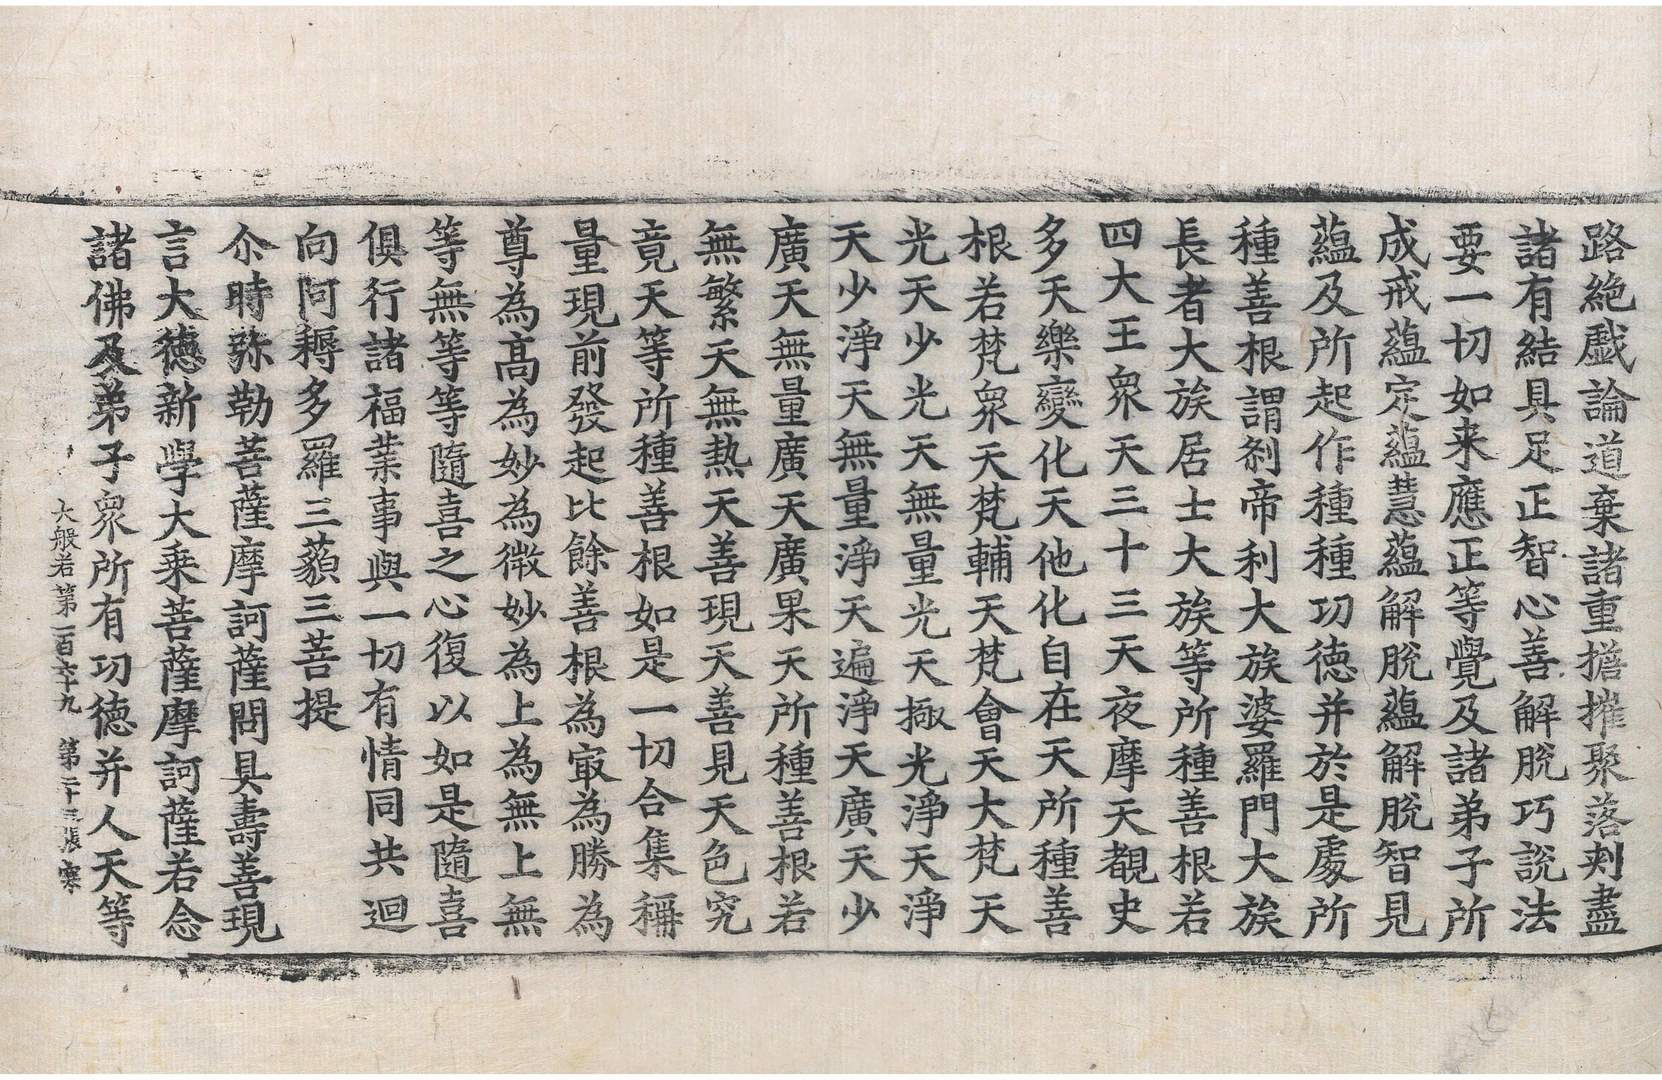 路絶戲論道棄諸重擔摧聚落刺盡
諸有結具足正智心善解脫巧說法
要一切如来應正等覺及諸弟子所
成戒蘊定蘊慧蘊解脫蘊解脫智見
蘊及所起作種種功德并於是處所
種善根謂刹帝利大族婆羅門大族
長者大族居士大族等所種善根若
四大王衆天三十三天夜摩天覩史
多天樂變化天他化自在天所種善
根若梵衆天梵輔天梵會天大梵天
光天少光天無量光天極光淨天淨
天少淨天無量淨天遍淨天廣天少
廣天無量廣天廣果天所種善根若
無繁天無熱天善現天善見天色究
竟天等所種善根如是一切合集稱
量現前發起比餘善根為㝡為勝為
尊為高為妙為微妙為上為無上無
等無等等隨喜之心復以如是隨喜
俱行諸福業事與一切有情同共迴
向阿耨多羅三藐三菩提
尒時弥勒菩薩摩訶薩問具壽善現
言大德新學大乗菩薩摩訶薩若念
諸佛及弟子衆所有功德并人天等
大般若第一百六十九 第二十三張 寒